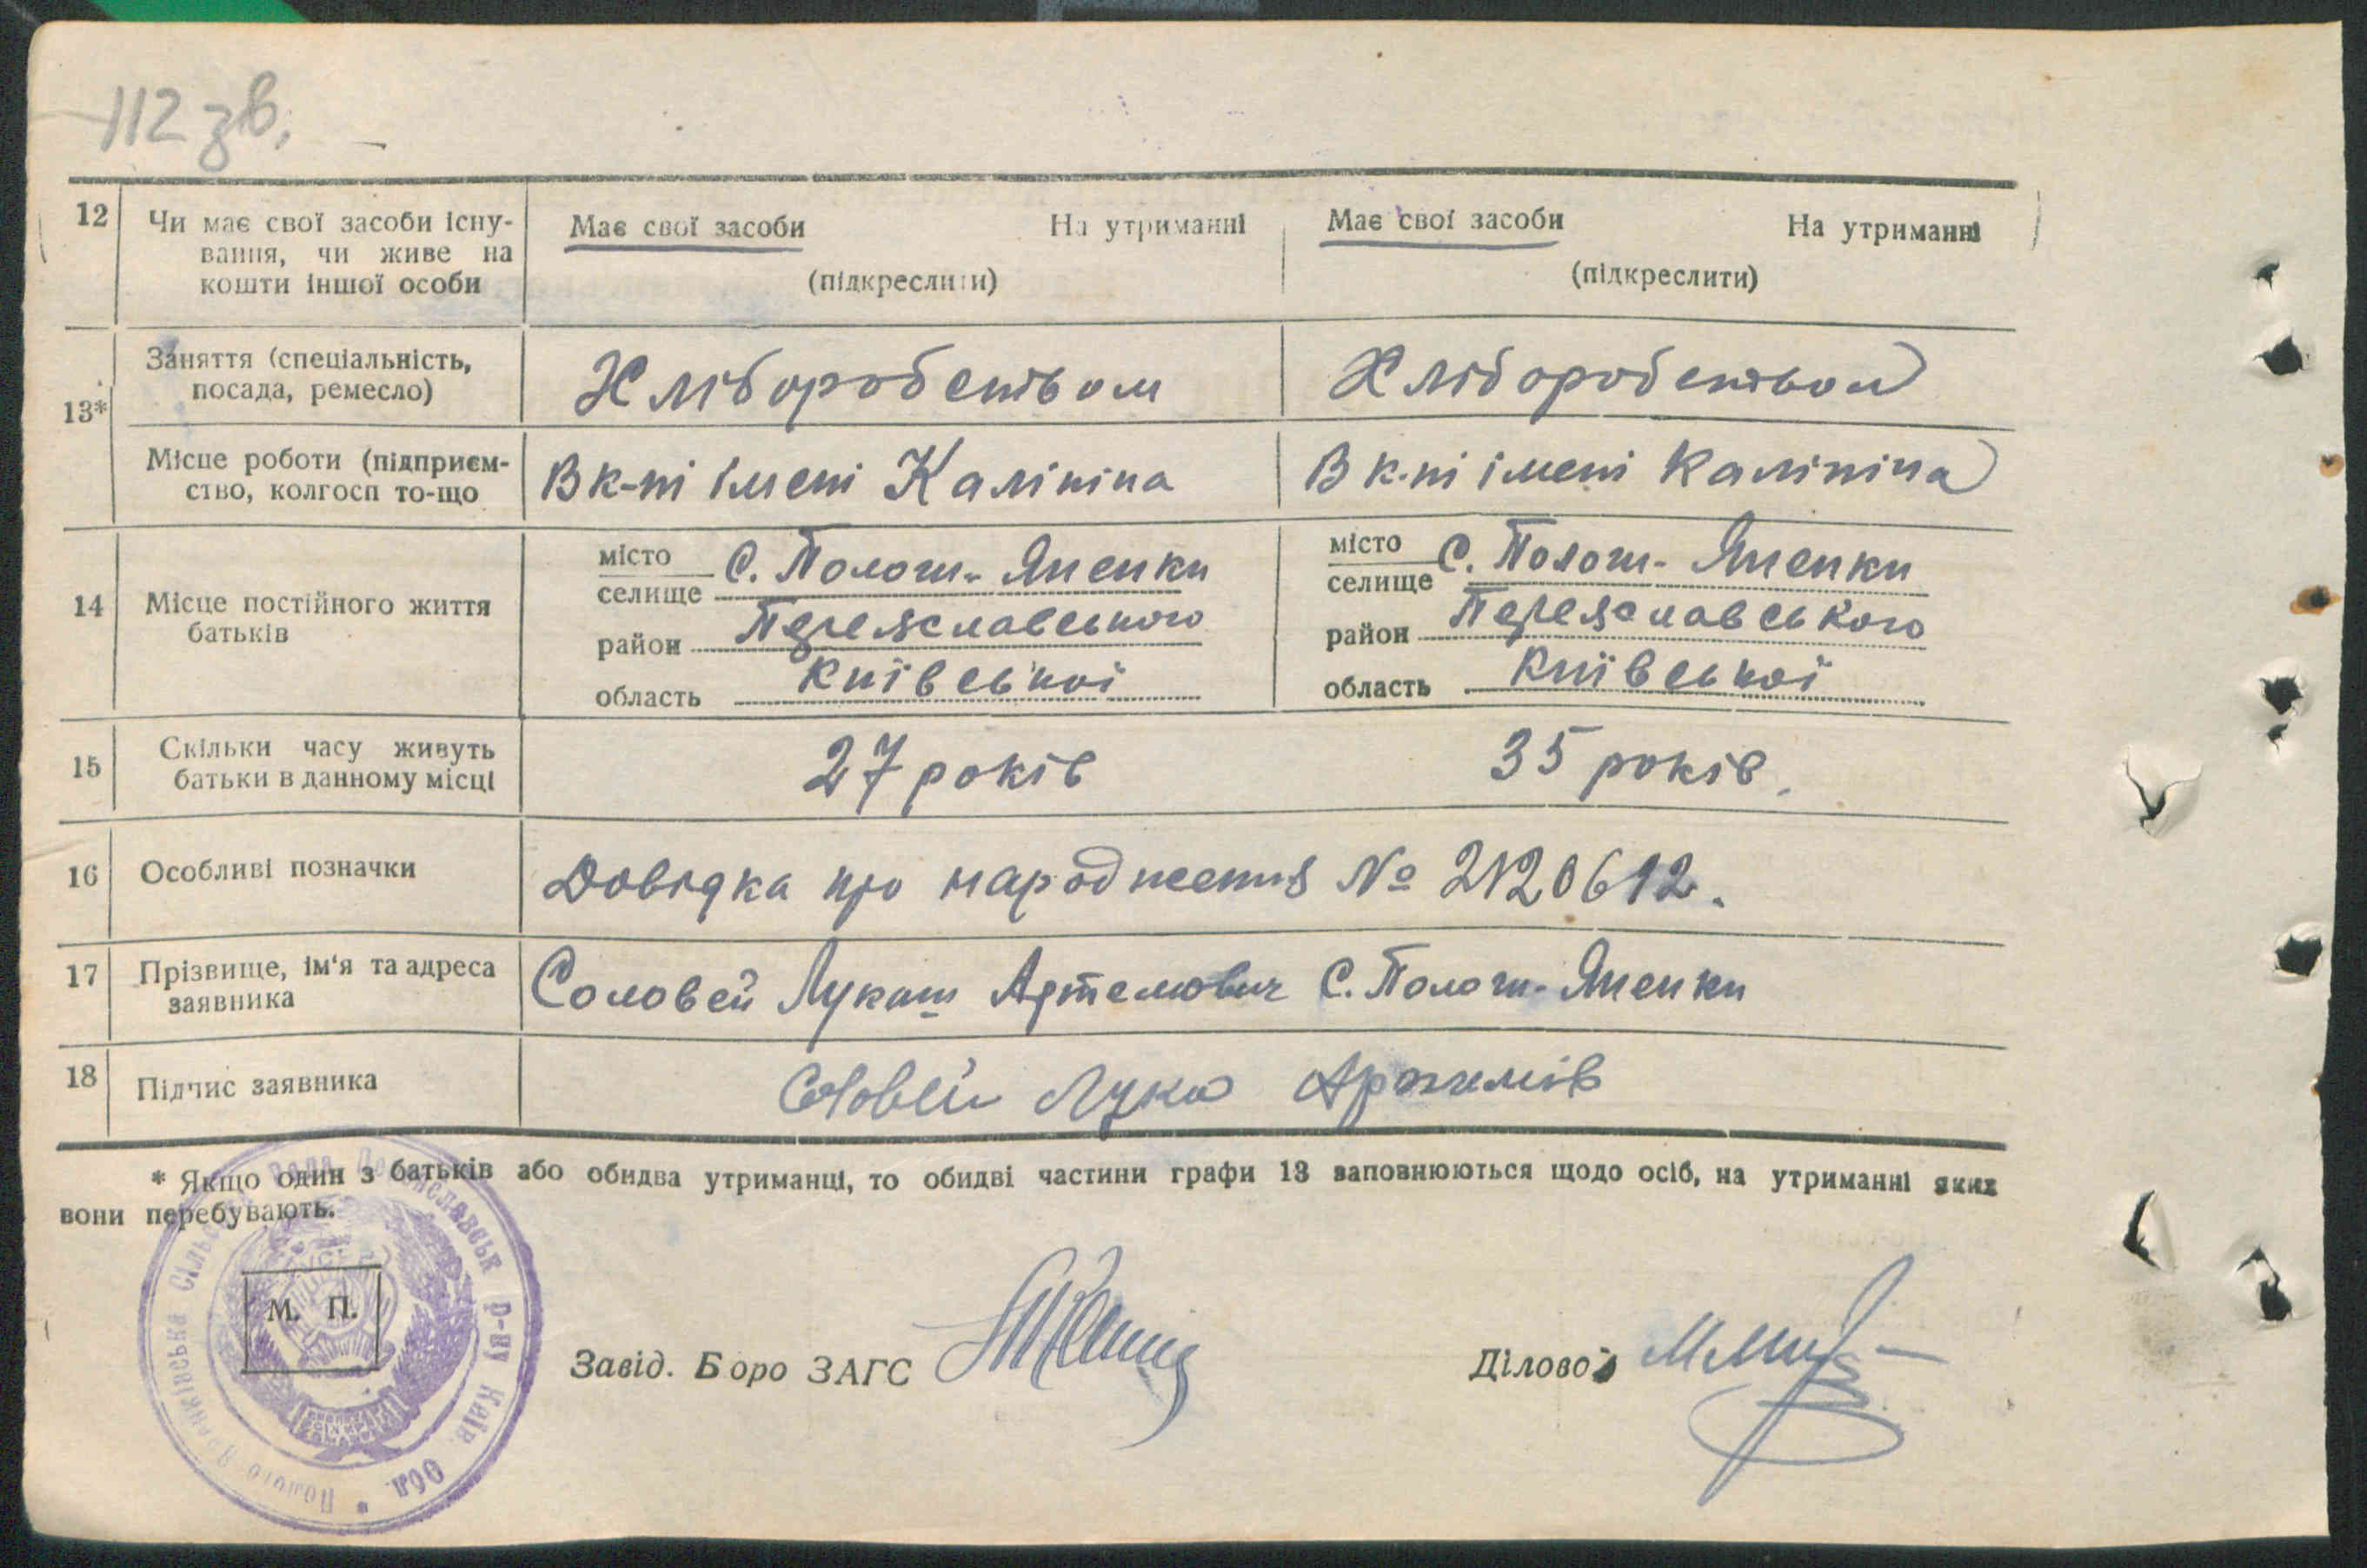 112 зв.
12 Чи має свої засоби існу- Має свої засоби На утриманні Має свої засоби На утриманні
вання, чи живе на
кошти іншої особи (підкреслити) (підкреслити)
13* Заняття (спеціальність, Хліборобством Хліборобством
посада, ремесло)
Місце роботи (підприєм- В к-пі імені Калініна В к-пі імені Калініна
ство, колгосп то-що
14 Місце постійного життя
батьків
місто С. Полог.- Яненки місто С. Полог.- Яненки
селище селище
район Переяславського район Переяславського
область Київської область Київської
15 Скільки часу живуть 27 років 35 років.
батьки в данному місці
16 Особливі позначки Довідка про народження № 2120612.
17 Прізвище, ім'я та адреса Соловей Лукаш Артемович С. Полог.- Яненки
заявника
18 Підпис заявника Соловей Лука Артемів
* Якщо один з батьків або обидва утриманці, то обидві частини графи 13 заповнюються щодо осіб, на утриманні яких
вони перебувають.
М. П.
Завід. Бюро ЗАГС Діловод
Сільська Рада Переяславськ р-ну Київ. Обл. *